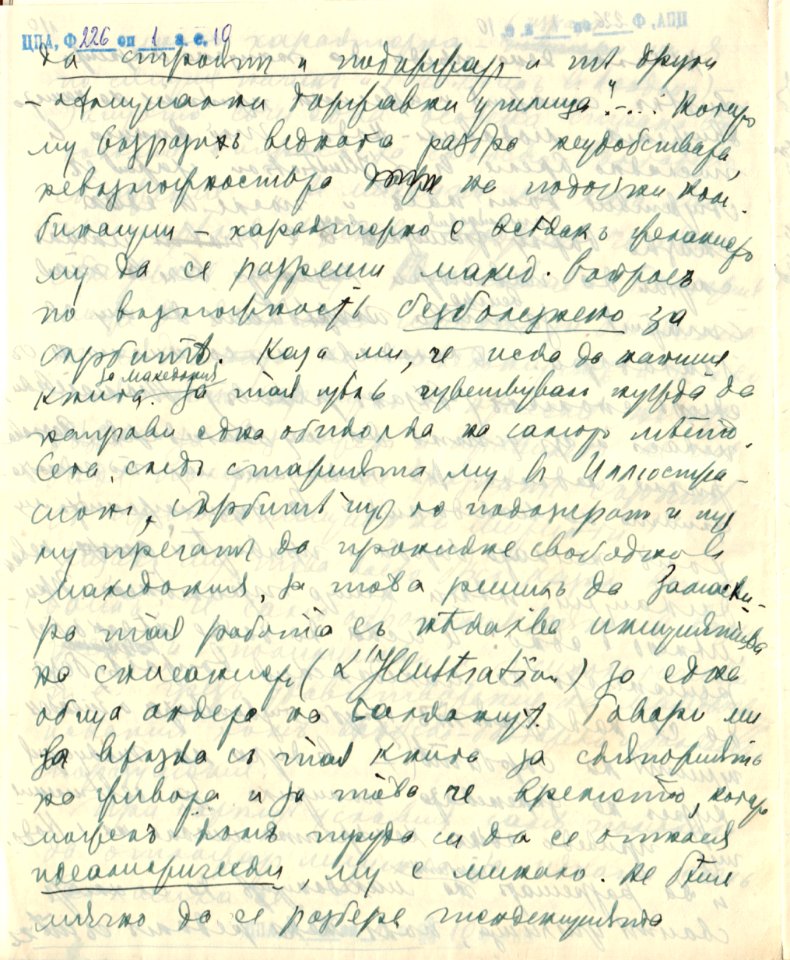 ЦПА, Ф 226 оп 1 а. е. 19
да строятъ и подържатъ и тѣ други
официални държавни училища"–... Когато
му възразихъ веднага разбра неудобствата,
невъзможностьта на подобни ком-
бинации – характерно е всѣкакъ желанието
му да се разреши макед. въпросъ
по възможность безболезнено за
сърбитѣ. Каза ми, че иска да напише
книга за Македония. За тая цѣль чувствувалъ нужда да
направи една обиколка на самото мѣсто.
Сега, следъ статията му въ Илюстра-
сионъ, сърбитѣ го подозиратъ и
му пречатъ да проникне свободно въ
Македония, за това решилъ да замаски-
ра тая работа съ нѣкаква инициатива
на списанието (L'Illustration) за една
обща анкета на Балканитѣ. Говори ми
въ връзка съ тая книга за
на и за това че времето, когато
можелъ къмъ труда си да се отнася
идеалистически, му е минало. Не бѣше
мѫчно да се разбере тенденцията